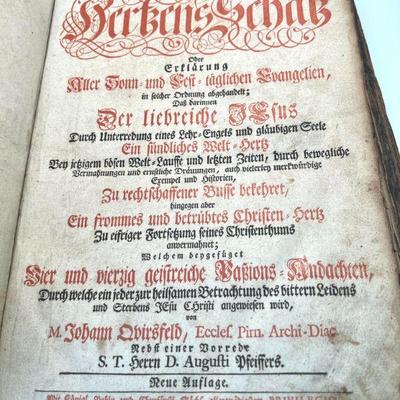 Hertzens Schatz
Oder
Erklärung
Aller Sonn- und Fest-täglichen Evangelien,
in solcher Ordnung abgehandelt;
Daß darinnen
Der liebreiche JEsus
Durch Unterredung eines Lehr-Engels und gläubigen Seele
Ein sündliches Welt-Hertz
Bey jetzigem bösen Welt-Lauffe und letzten Zeiten, durch bewegliche
Vermahnungen und ernstliche Dräuungen, auch vielerley merckwürdige
Exempel und Historien,
Zu rechtschaffener Busse bekehret,
hingegen aber
Ein frommes und betrübtes Christen-Hertz
Zu eifriger Fortsetzung seines Christenthums
anvermahnet;
Welchem beygefüget
Vier und vierzig geistreiche Paßions-Andachten,
Durch welche ein jeder zur heilsamen Betrachtung des bittern Leidens
und Sterbens JEsu Christi angewiesen wird,
von
M. Johann Qvirsfeld, Ecclef. Pirn. Archi-Diac.
Nebst einer Vorrede
S. T. Herrn D. Augusti Pfeiffers.
Neue Auflage.